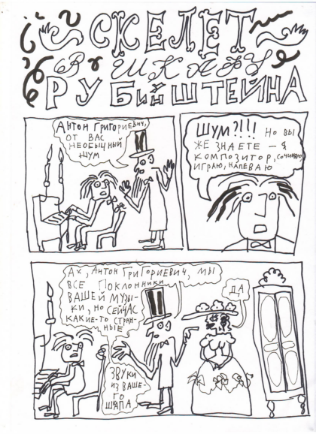 СКЕЛЕТ
В ШКАПУ
РУБИНШТЕЙНА
АНТОН ГРИГОРИЕВИЧ,
ОТ ВАС
НЕОБЫЧНЫЙ
ШУМ
ШУМ?!!! НО ВЫ
ЖЕ ЗНАЕТЕ – Я
КОМПОЗИТОР, СОЧИНЯЮ
ИГРАЮ, НАПЕВАЮ
АХ, АНТОН ГРИГОРИЕВИЧ, МЫ
ВСЕ ПОКЛОННИКИ
ВАШЕЙ МУЗЫ-
КИ, НО СЕЙЧАС
КАКИЕ-ТО СТРАН-
НЫЕ
ДА
ЗВУКИ
ИЗ ВАШЕ-
ГО